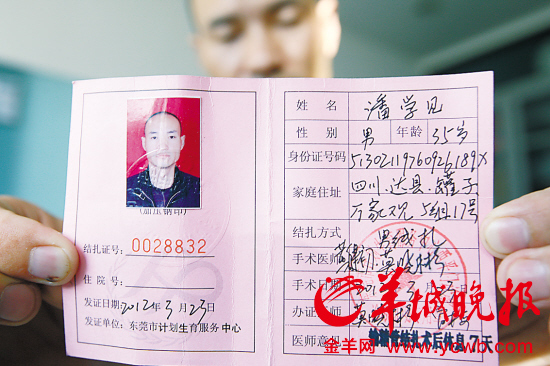 (加压钢印)
结扎证号: 0028832
住院号:
发证日期: 2012年3月23日
发证单位: 东莞市计划生育服务中心
姓名 潘学见
性别 男 年龄 35岁
身份证号码 51302119760926189X
家庭住址 四川.达县.罐子
万家
5组17号
结扎方式 男结扎
手术医师
手术日期
办证
医师意见 输精管结扎术后休息7天
羊城晚报
金羊网 www.ycwb.com